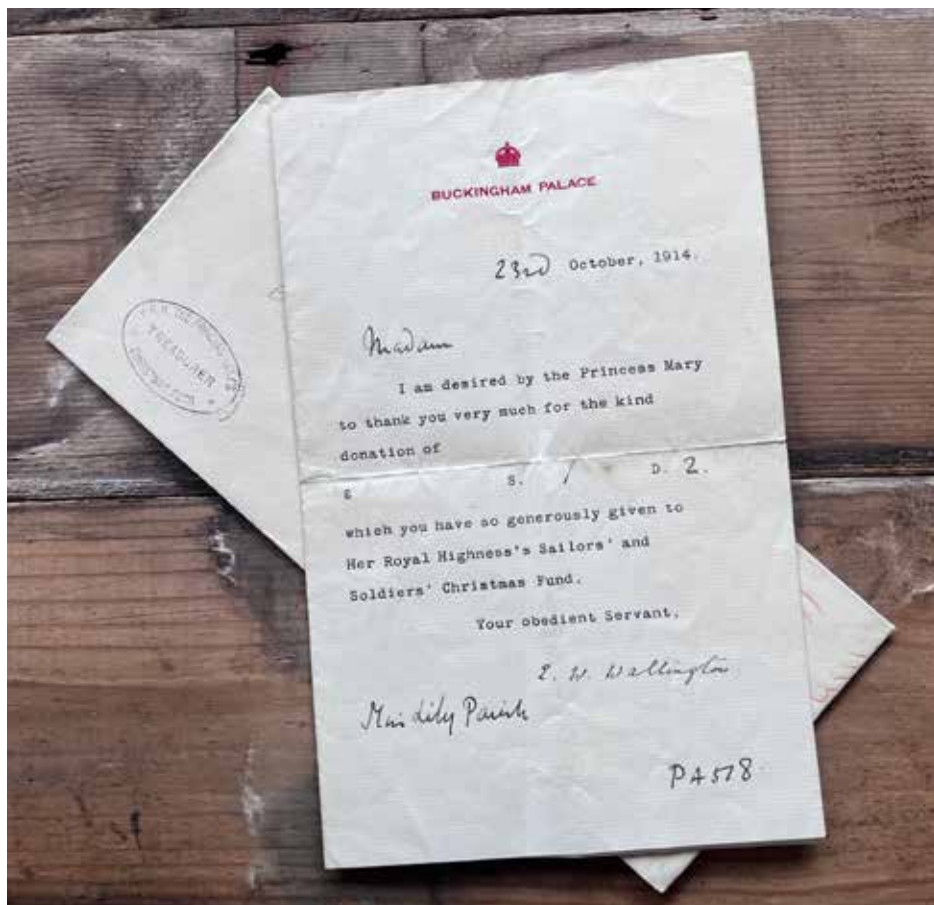 BUCKINGHAM PALACE
23rd October, 1914.
Madam
I am desired by the Princess Mary
to thank you very much for the kind
donation of
£ S. 1 D. 2.
which you have so generously given to
Her Royal Highness's Sailors' and
Soldiers' Christmas Fund.
Your obedient Servant,
E. W. Wallington
Miss Lily Parish
PA578
TREASURER